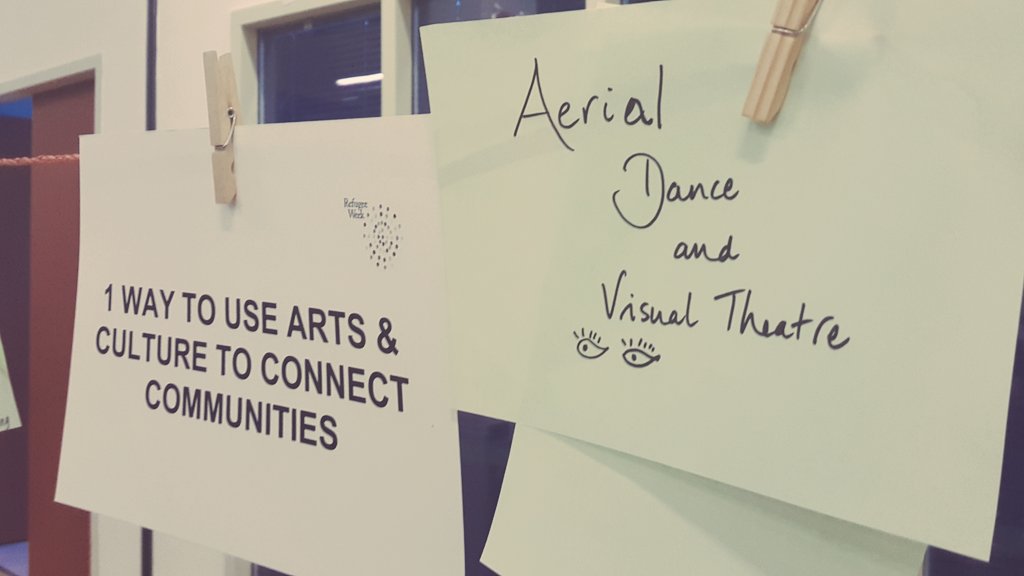 Refugee
Week
1 WAY TO USE ARTS &
CULTURE TO CONNECT
COMMUNITIES
Aerial
Dance
and
Visual Theatre